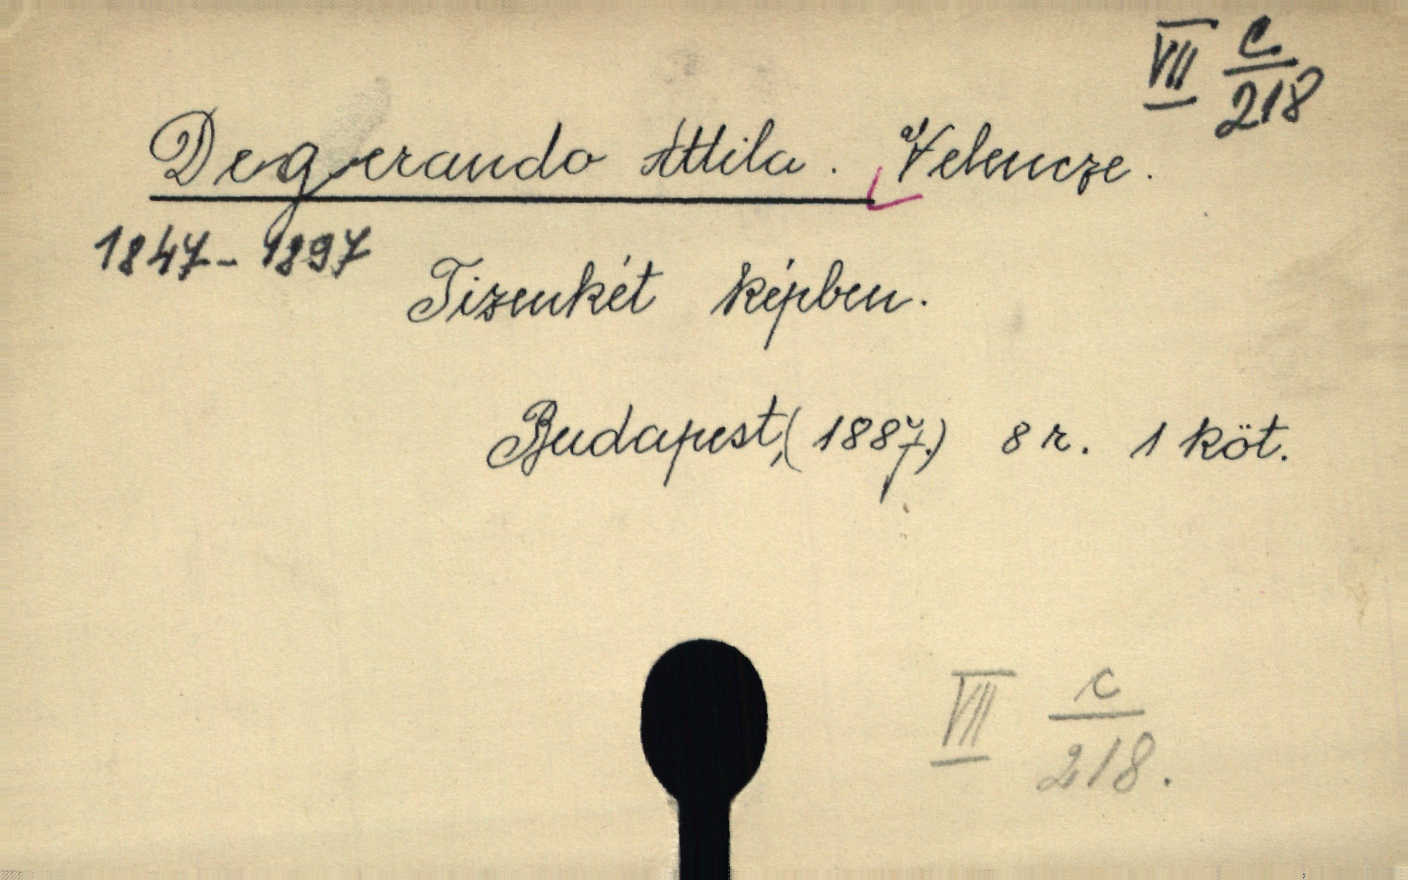 VII c/218
Degerando Attila. Velencze.
1847-1897
Tizenkét képben.
Budapest, (1887.) 8 r. 1 köt.
VII c/218.